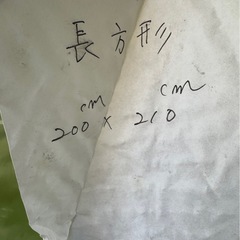 長方形
cm cm
200 × 210